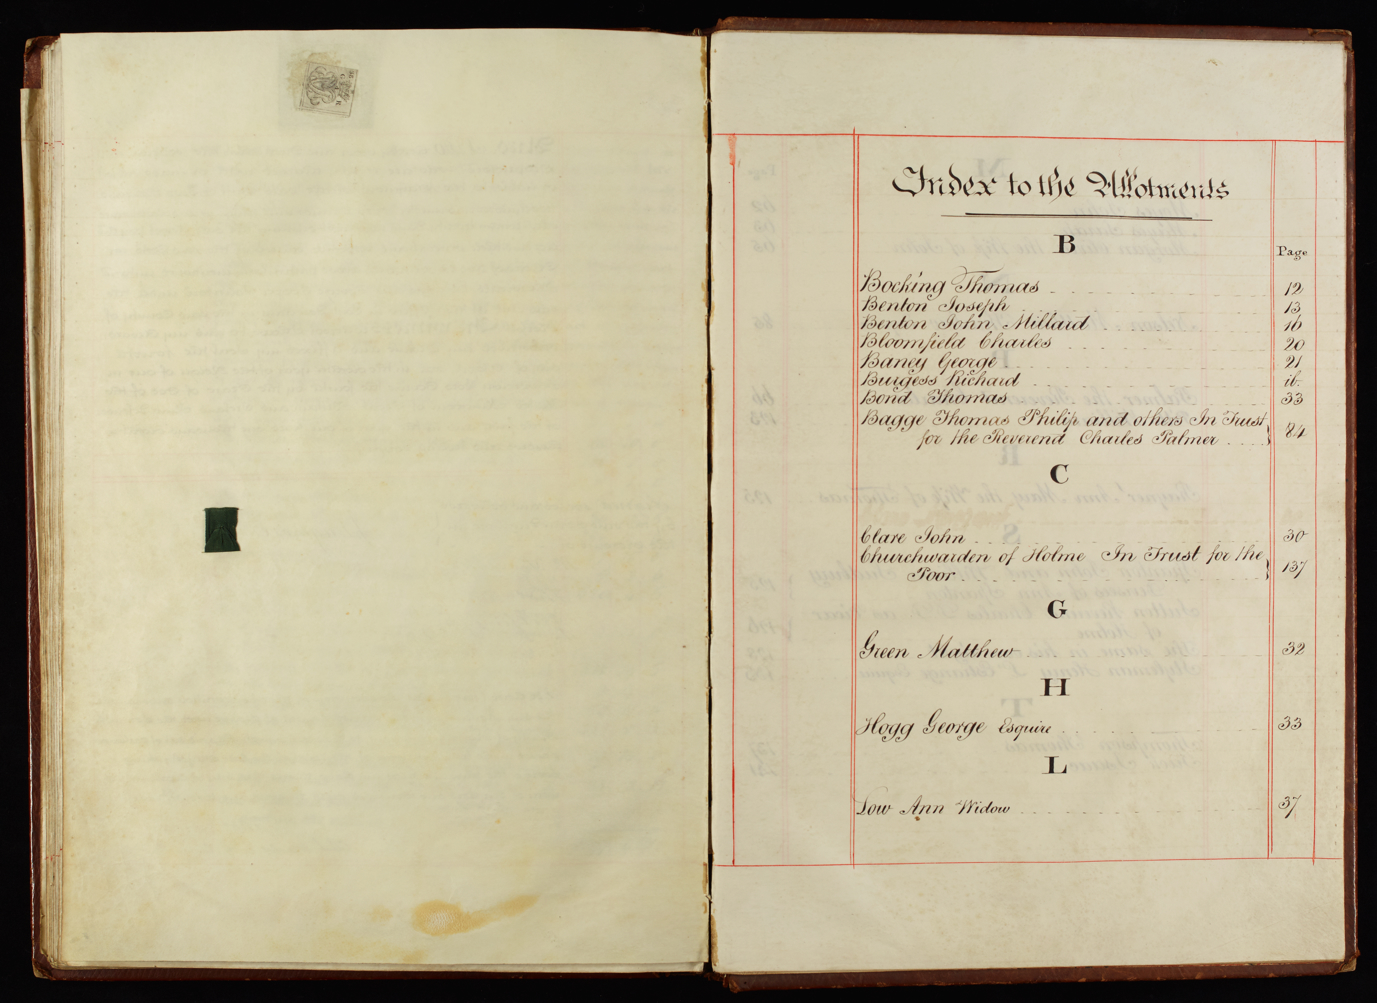 Index to the Allotments
B
Page
Bocking Thomas 12
Benton Joseph 13
Benton John Millard 16
Bloomfield Charles 20
Baney George 21
Burgess Richard ib.
Bond Thomas 33
Bagge Thomas Philip and others In Trust
for the Reverend Charles Palmer 84
C
Clare John 30
Churchwarden of Holme In Trust for the
Poor 137
G
Green Matthew 32
H
Hogg George Esquire 33
L
Low Ann Widow 37